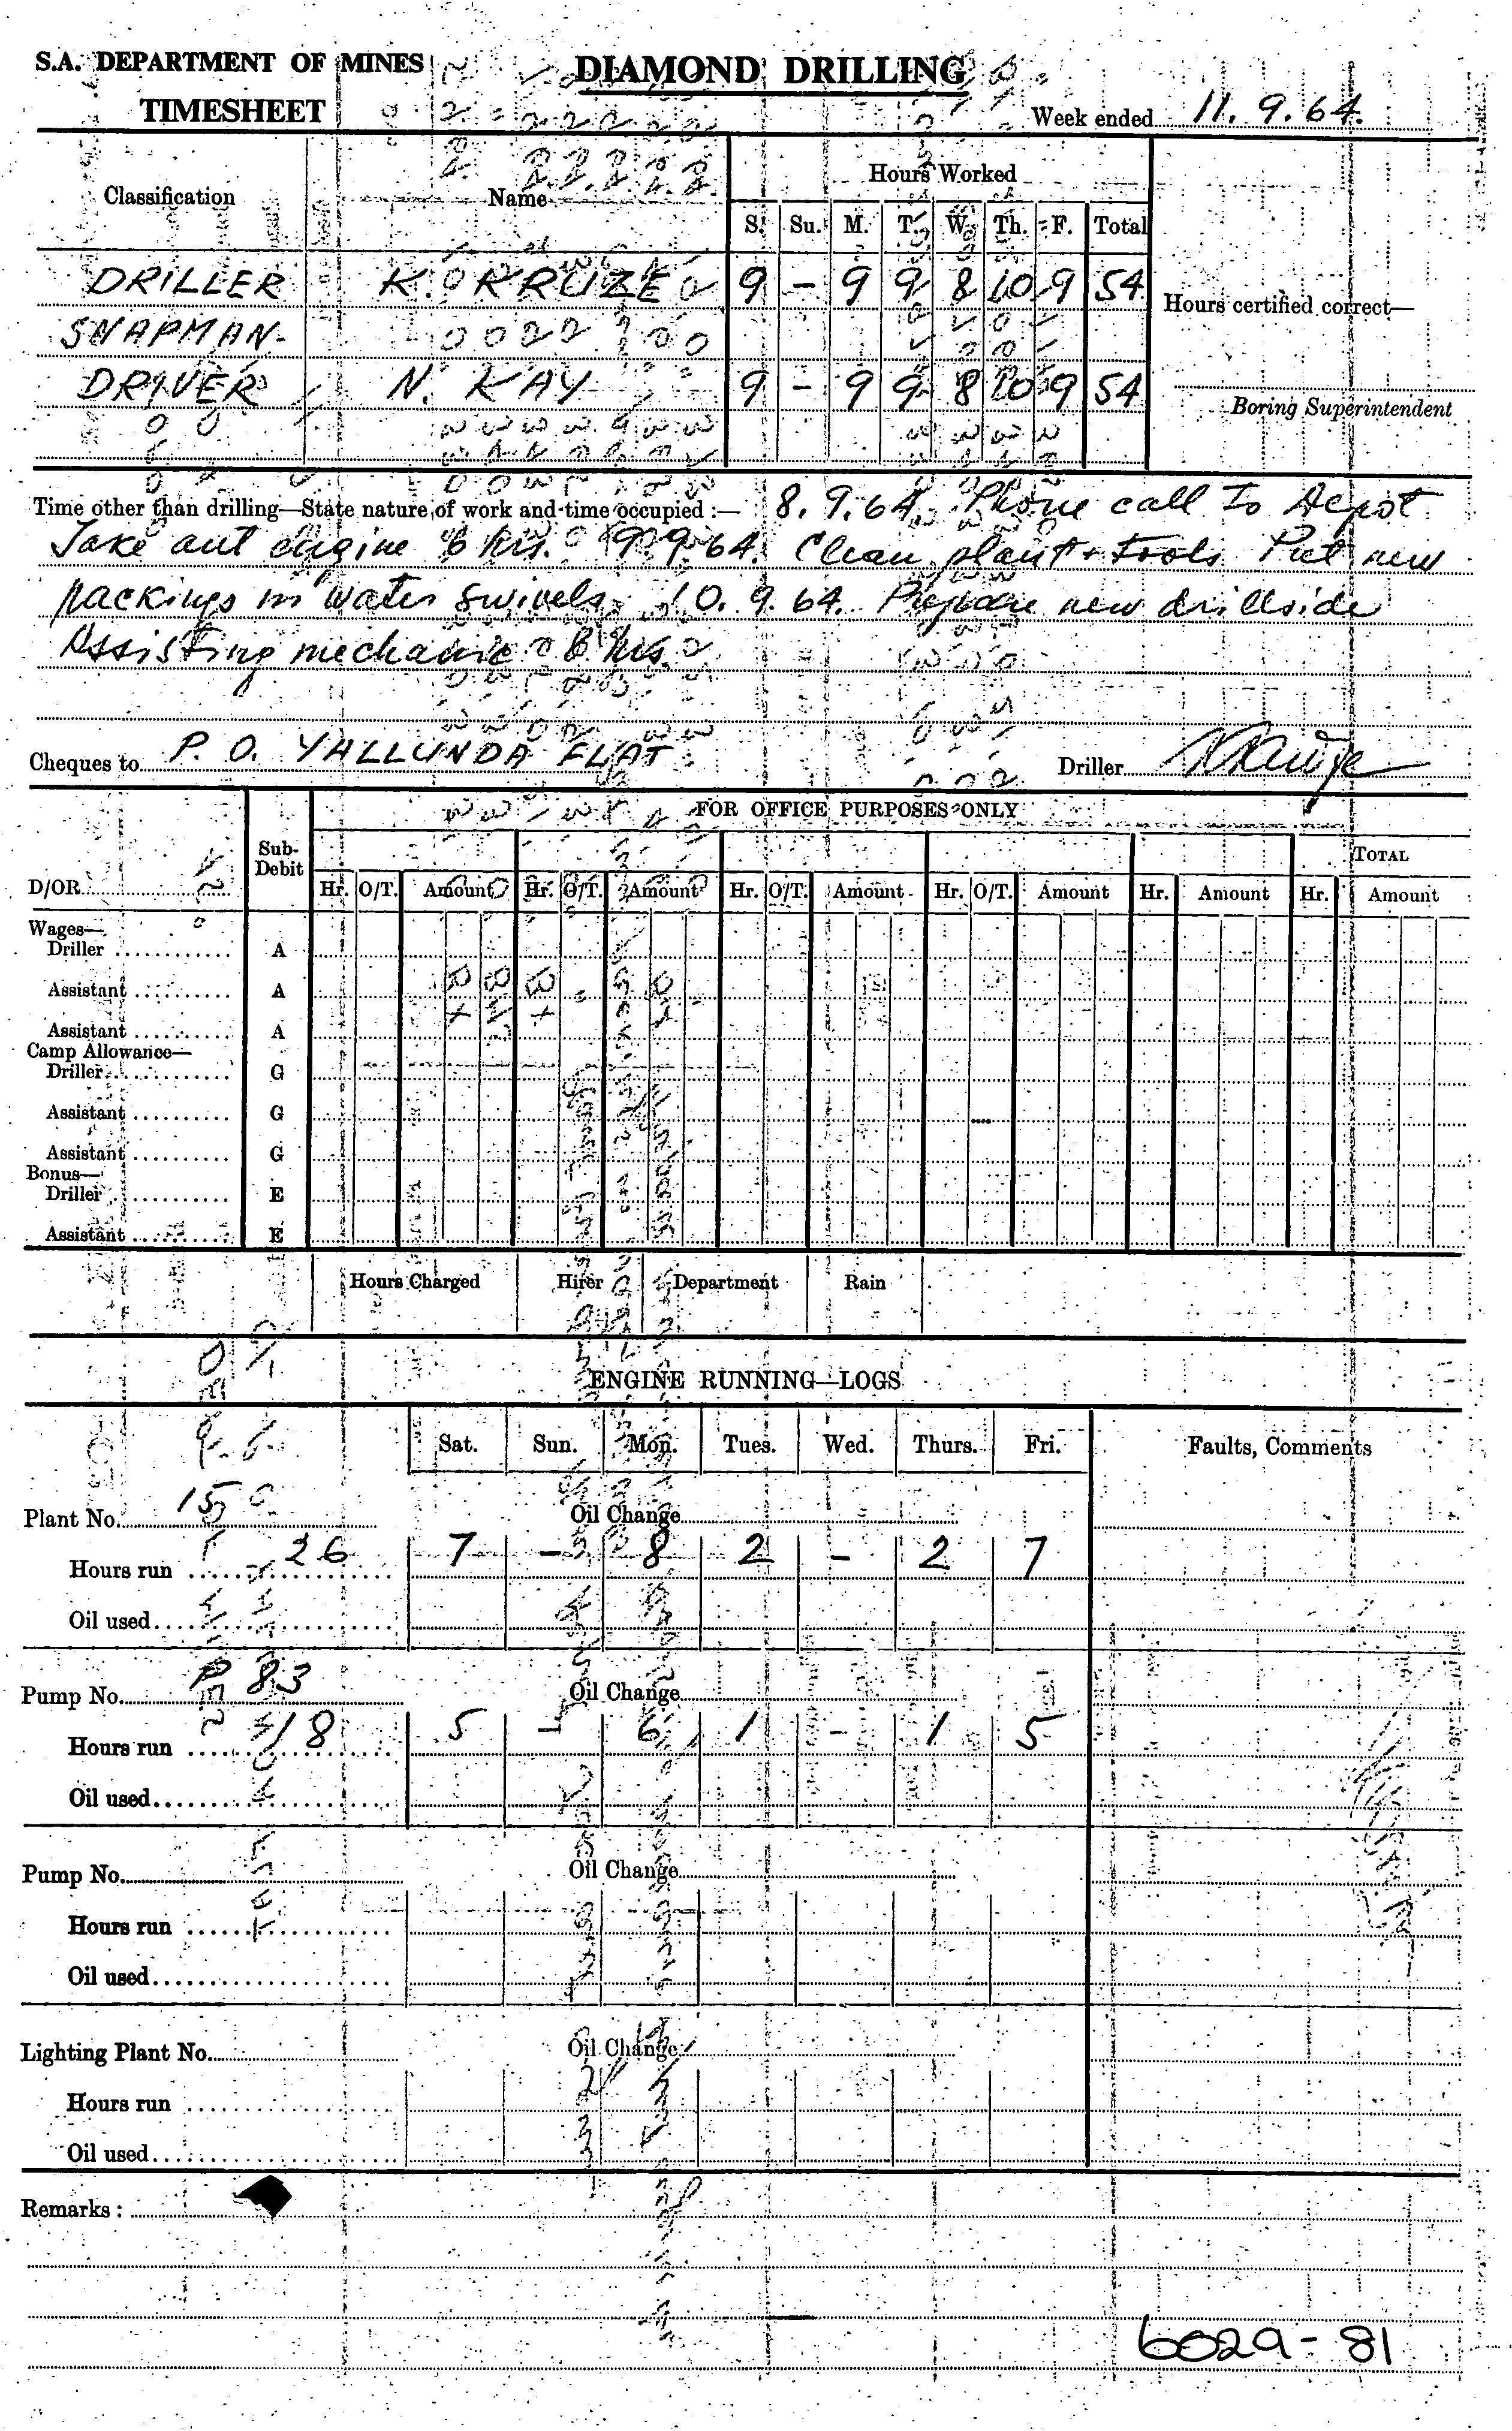 S.A. DEPARTMENT OF MINES
DIAMOND DRILLING
TIMESHEET
Week ended 11. 9. 64.
Classification Name Hours Worked
S. Su. M. T. W. Th. F. Total
DRILLER K. KRUZE 9 - 9 9 8 10 9 54
Hours certified correct—
SNAPMAN-
DRIVER N. KAY 9 - 9 9 8 10 9 54
Boring Superintendent
Time other than drilling—State nature of work and time occupied :— 8. 9. 64. Phone call to Depot
Take out engine 6 hrs. 9 9 64. Clean plant + tools Put new
packings in water swivels 10. 9. 64. Prepare new drillside
Assisting mechanic 6 hrs.
Cheques to P. O. YALLUNDA FLAT
Driller
FOR OFFICE PURPOSES ONLY
D/OR Sub-Debit TOTAL
Hr. O/T. Amount Hr. O/T. Amount Hr. O/T. Amount Hr. O/T. Amount Hr. Amount Hr. Amount
Wages—
Driller A
Assistant A
Assistant A
Camp Allowance—
Driller G
Assistant G
Assistant G
Bonus—
Driller E
Assistant E
Hours Charged Hirer Department Rain
ENGINE RUNNING—LOGS
Sat. Sun. Mon. Tues. Wed. Thurs. Fri. Faults, Comments
Plant No. 15 Oil Change
Hours run 26 7 - 8 2 - 2 7
Oil used
Pump No. P 83 Oil Change
Hours run 18 5 - 6 1 - 1 5
Oil used
Pump No. Oil Change
Hours run
Oil used
Lighting Plant No. Oil Change
Hours run
Oil used
Remarks :
6029-81